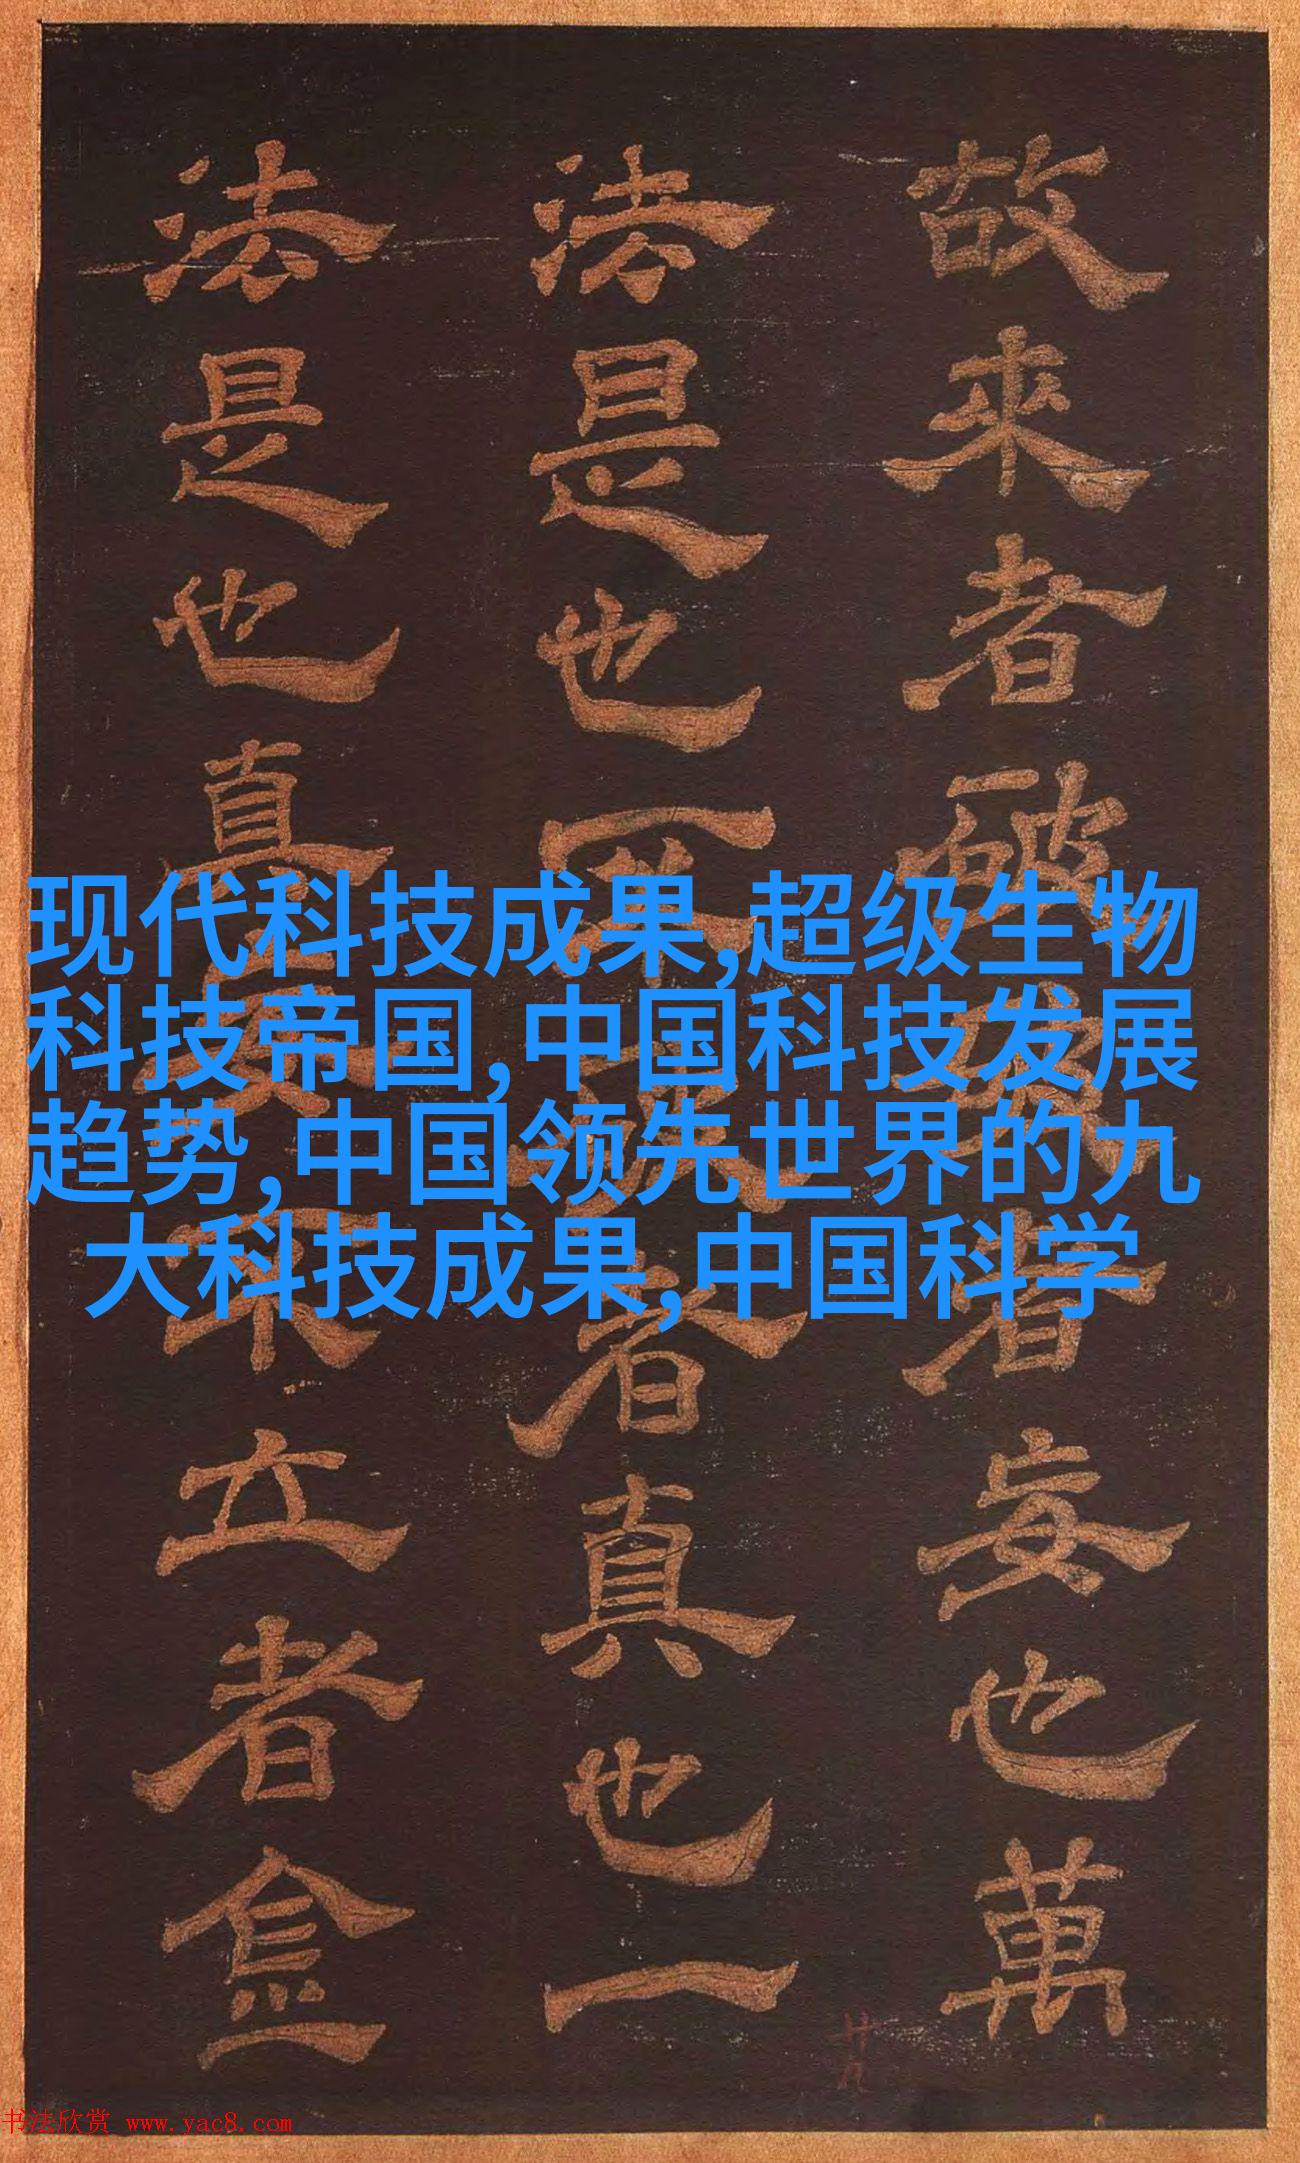 故來者者妄也萬
法是也者真也一
法是也真立者
现代科技成果,超级生物
科技帝国,中国科技发展
趋势,中国领先世界的九
大科技成果,中国科学
廿九
书法欣赏 www.yac8.com